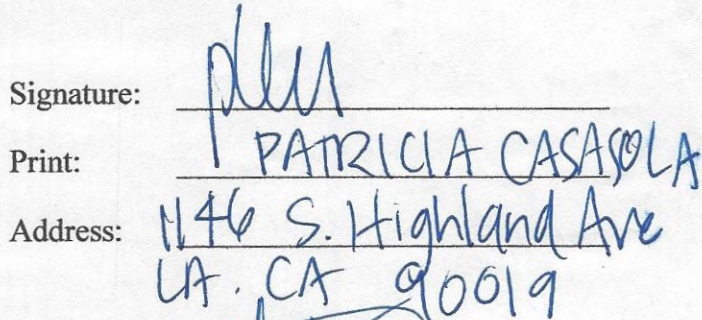 Signature:
Print: PATRICIA CASASOLA
Address: 1146 S. Highland Ave
LA. CA 90019